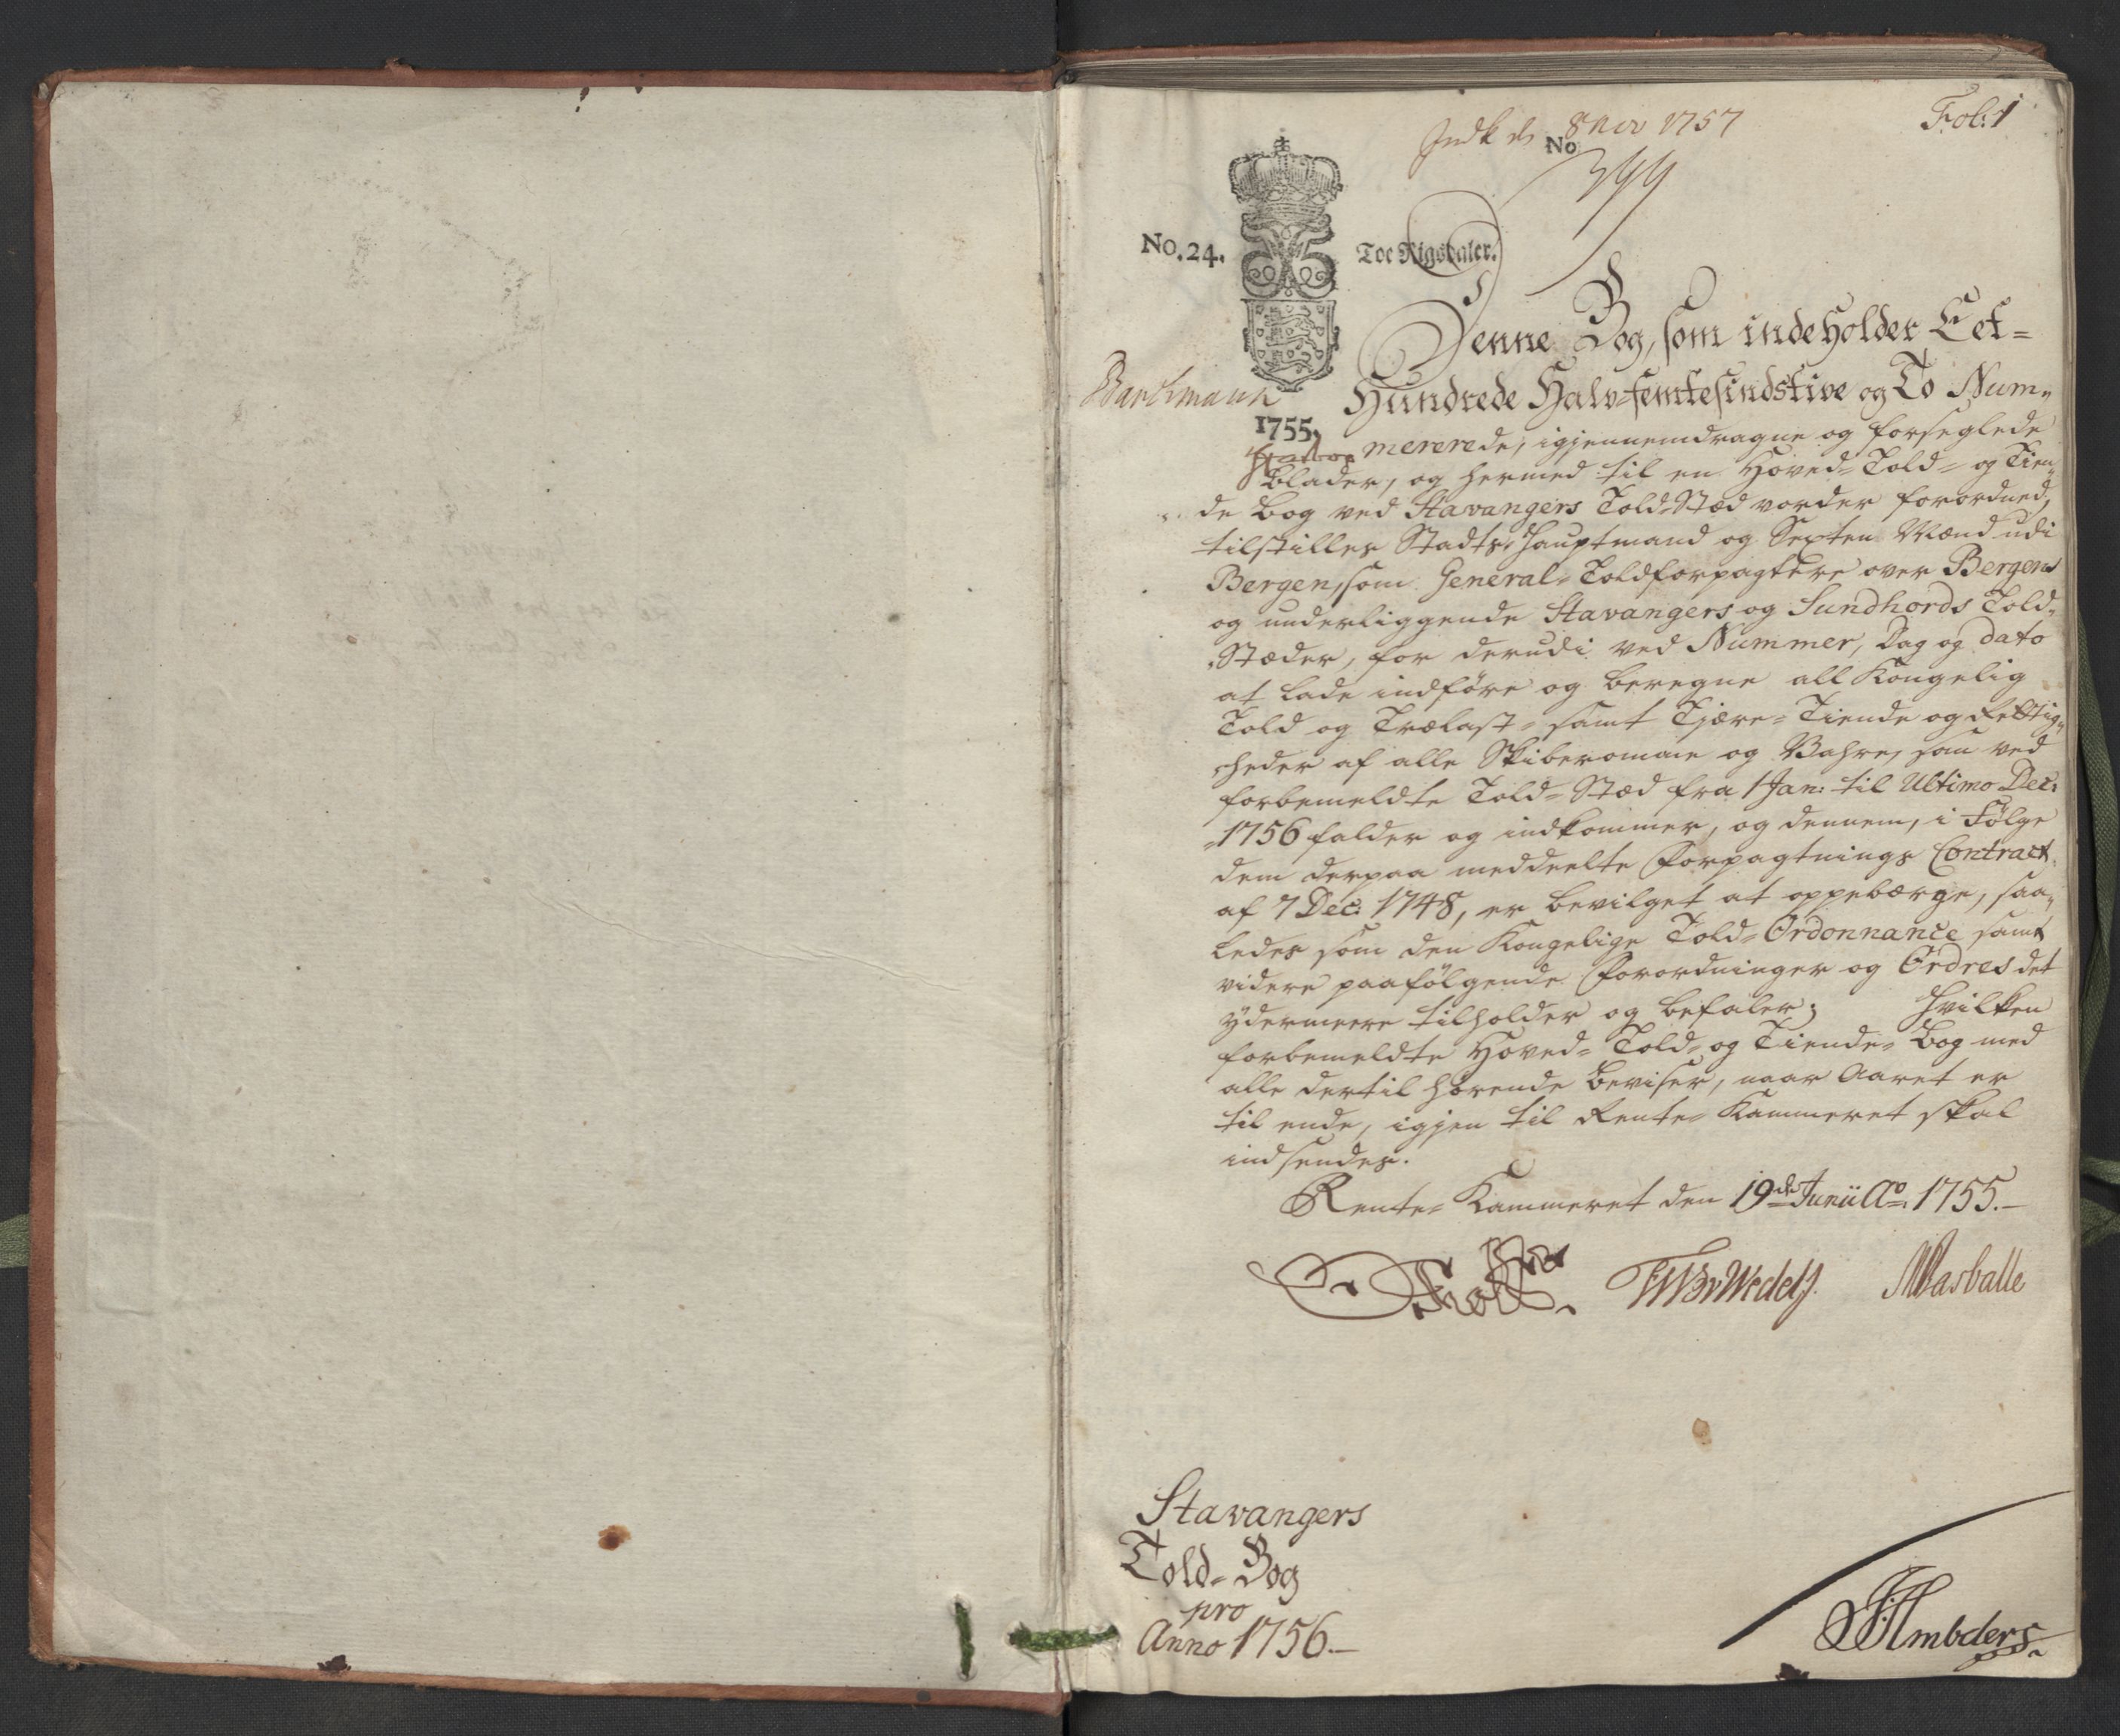 Fol: 1
Indk d 8 Nov 1757
No
399
No. 24.
Toe Rigsdaler.
Denne Bog, som indeholder Eet=
Hundrede Halv=femtesindstive og To Num„
1755.
mererede, igjennemdragne og forseglede
Blader, og hermed til en Hoved= Told= og Tien„
de Bog ved Stavangers Told=Stæd vorder forordned,
tilstilles Stadts=Hauptmand og Sexten Mænd udi
Bergen, som General=Toldforpagtere over Bergens
og underliggende Stavangers og Sundhords Told„
„Stæder, for derudi ved Nummer, Dag og dato
at lade indføre og beregne all Kongelig
Told og Trælast= samt Tjære=Tiende og Rettig„
„heder af alle Skiberomme og Vahre, som ved
forbemeldte Told=Stæd fra 1 Jan: til Ultimo Dec:
1756 falder og indkommer, og dennem, i Følge
dem derpaa meddeelte Forpagtnings Contract
af 7 Dec: 1748, er bevilget at oppebærge, saa„
ledes som den Kongelige Told=Ordonnance samt
videre paafølgende Forordninger og Ordres det
ydermeere tilholder og befaler; Hvilken
forbemeldte Hoved= Told= og Tiende= Bog med
alle dertil hørende Beviser, naar Aaret er
til ende, igjen til Rente=Kammeret skal
indsendes.
Rente=Kammeret den 19de Junii Ao. 1755.
Stavangers
Told=Bog
pro
Anno 1756.